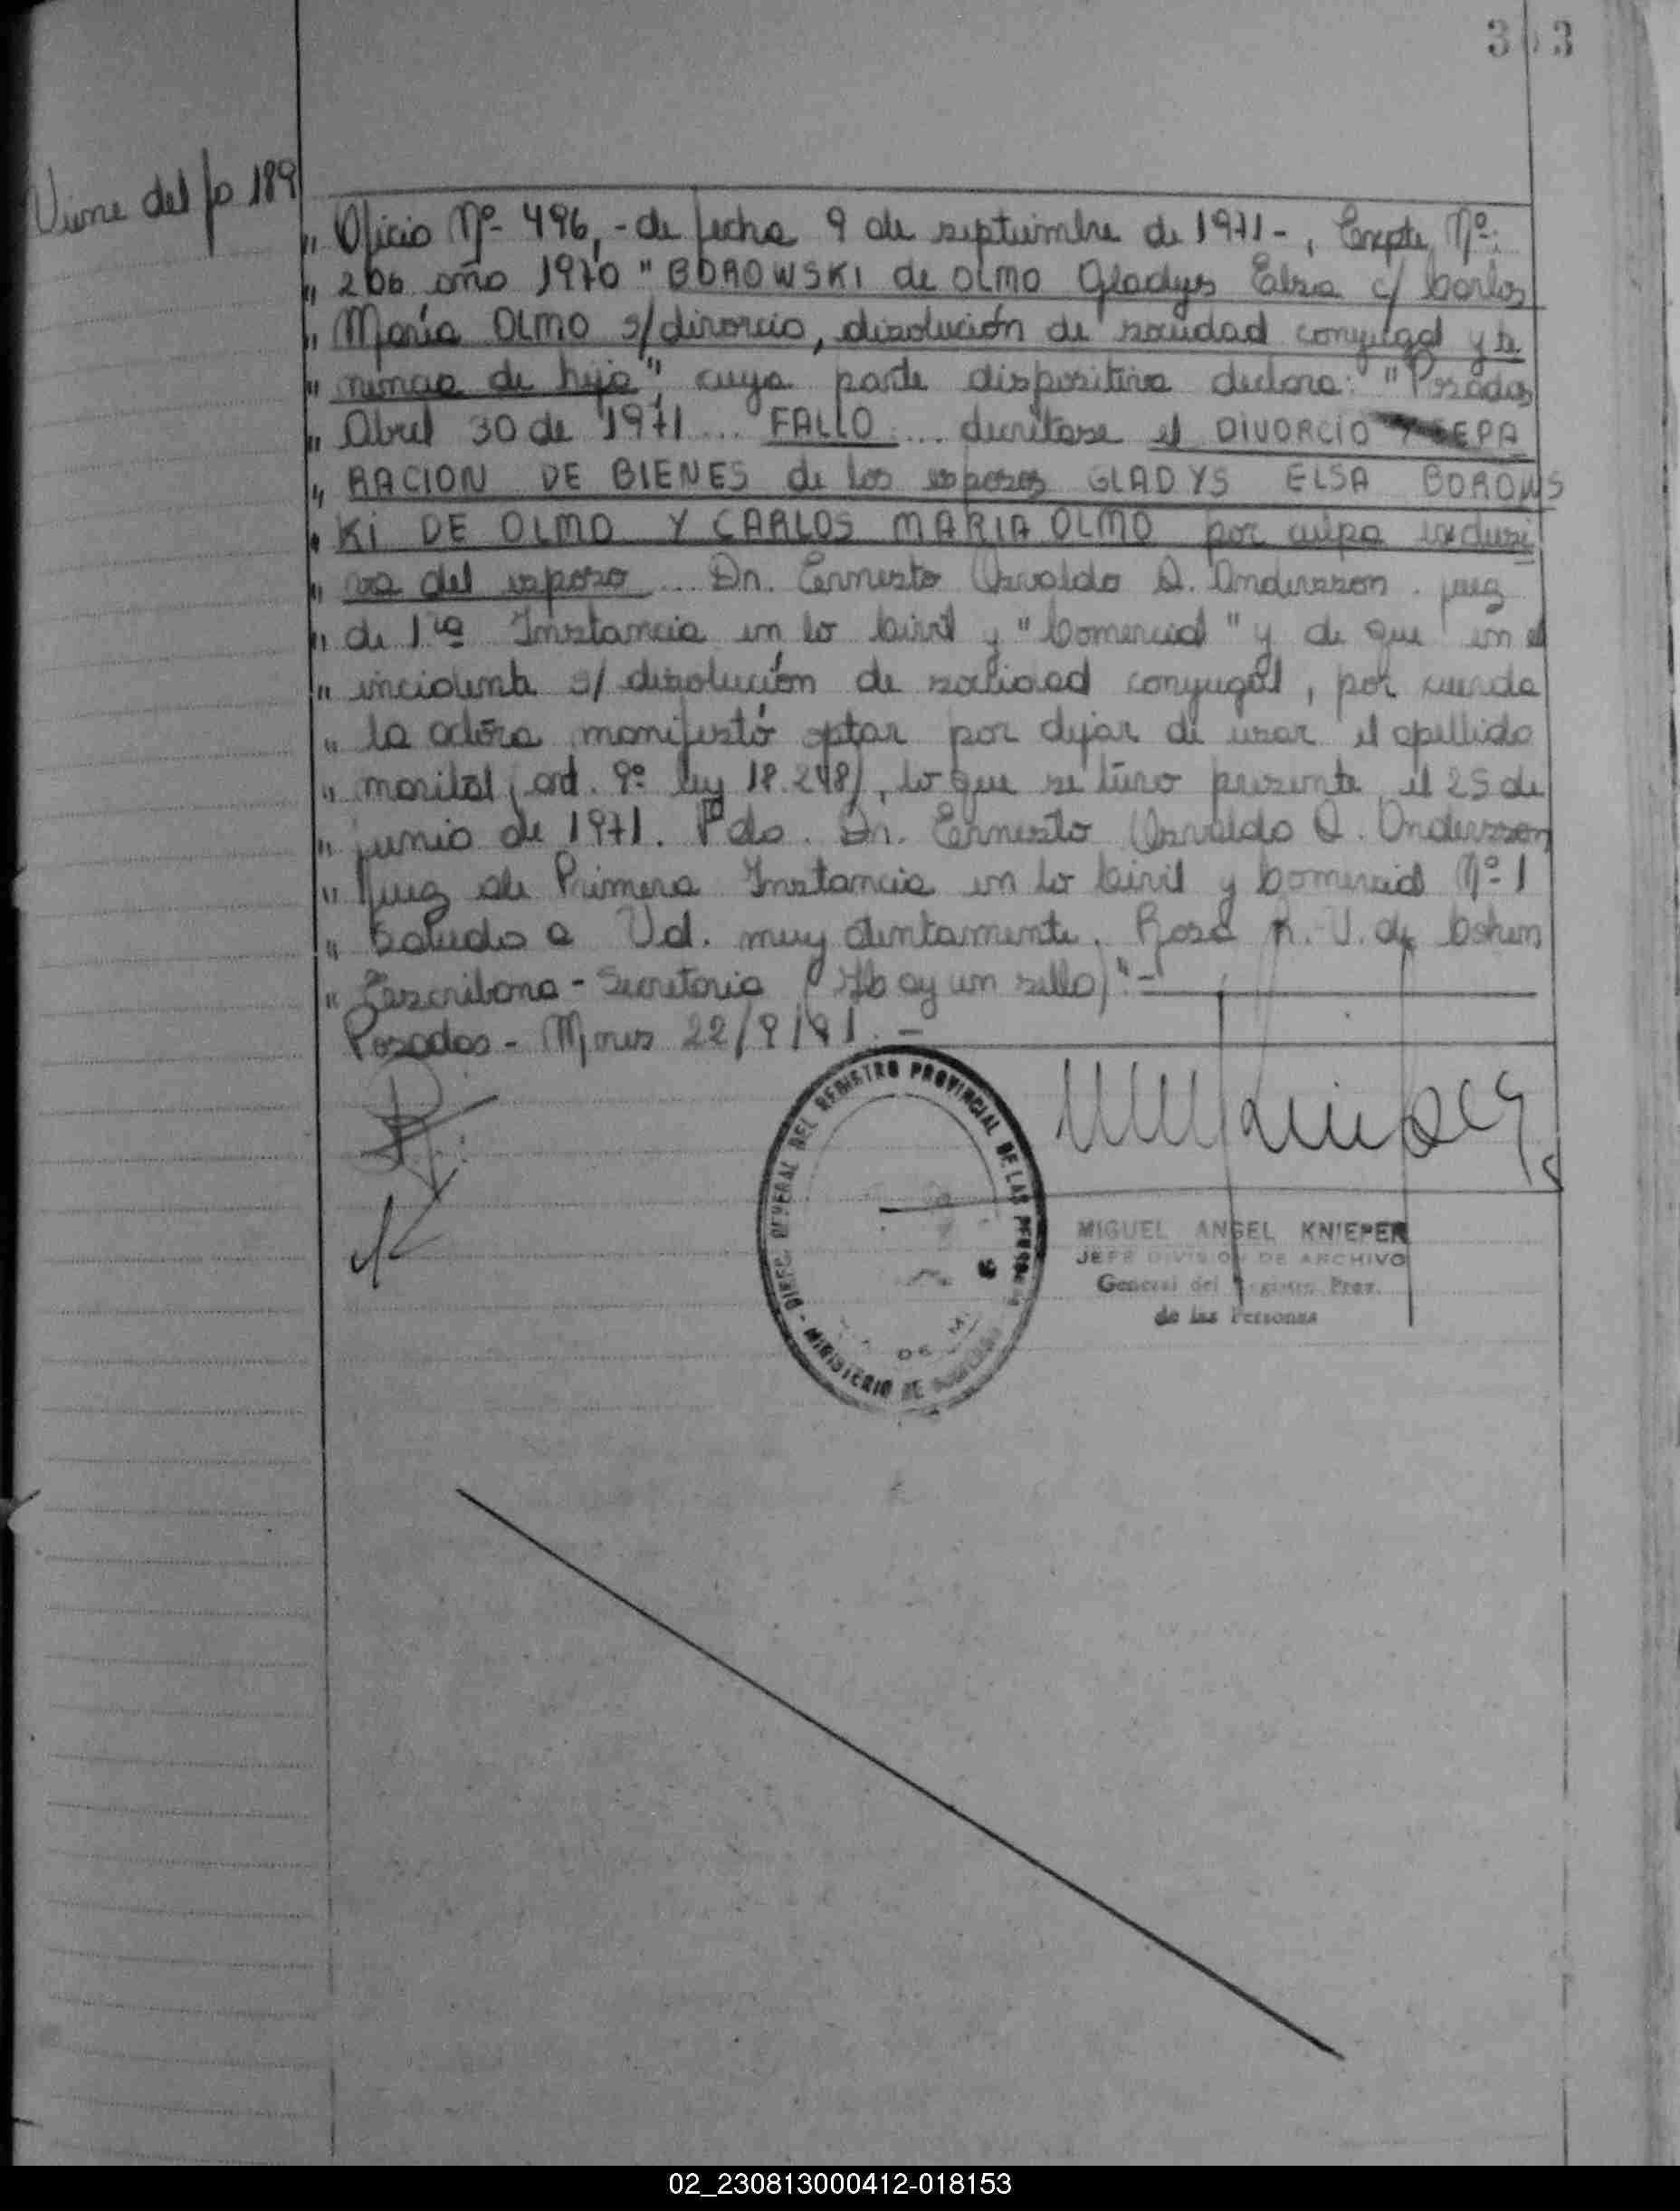 3 3
Viene del fo 189
" Oficio Nº 496, - de fecha 9 de septiembre de 1971 -, Expte Nº:
" 206 año 1970 "BOROWSKI de OLMO Gladys Elsa c/ Carlos
" María OLMO s/divorcio, disolución de sociedad conyugal y te
" nencia de hijo", cuya parte dispositiva declara: "Posadas
" Abril 30 de 1971 ... FALLO: ... decrétase el DIVORCIO Y SEPA
" RACION DE BIENES de los esposos GLADYS ELSA BOROWS
" KI DE OLMO Y CARLOS MARIA OLMO por culpa exclusi
" va del esposo ... Dn. Ernesto Osvaldo A. Andersson. juez
" de 1ra Instancia en lo Civil y "Comercial" y de que en el
" incidente s/ disolución de sociedad conyugal, por cuerda
" la actora manifestó optar por dejar de usar el apellido
" marital (art. 9º ley 18.248), lo que se tuvo presente el 25 de
" junio de 1971. Fdo. Dn. Ernesto Osvaldo A. Andersson
" Juez de Primera Instancia en lo Civil y Comercial Nº 1
" Saludo a Ud. muy atentamente. Rosa R. V. de Cohen
" Escribana - Secretaria (Hay un sello)". -
Posadas - Mnes 22/9/91. -
DIREC. GENERAL DEL REGISTRO PROVINCIAL DE LAS PERSONAS - MINISTERIO DE
MIGUEL ANGEL KNIEPER
JEFE DIVISION DE ARCHIVO
General del Registro Prov.
de las Personas
02_230813000412-018153